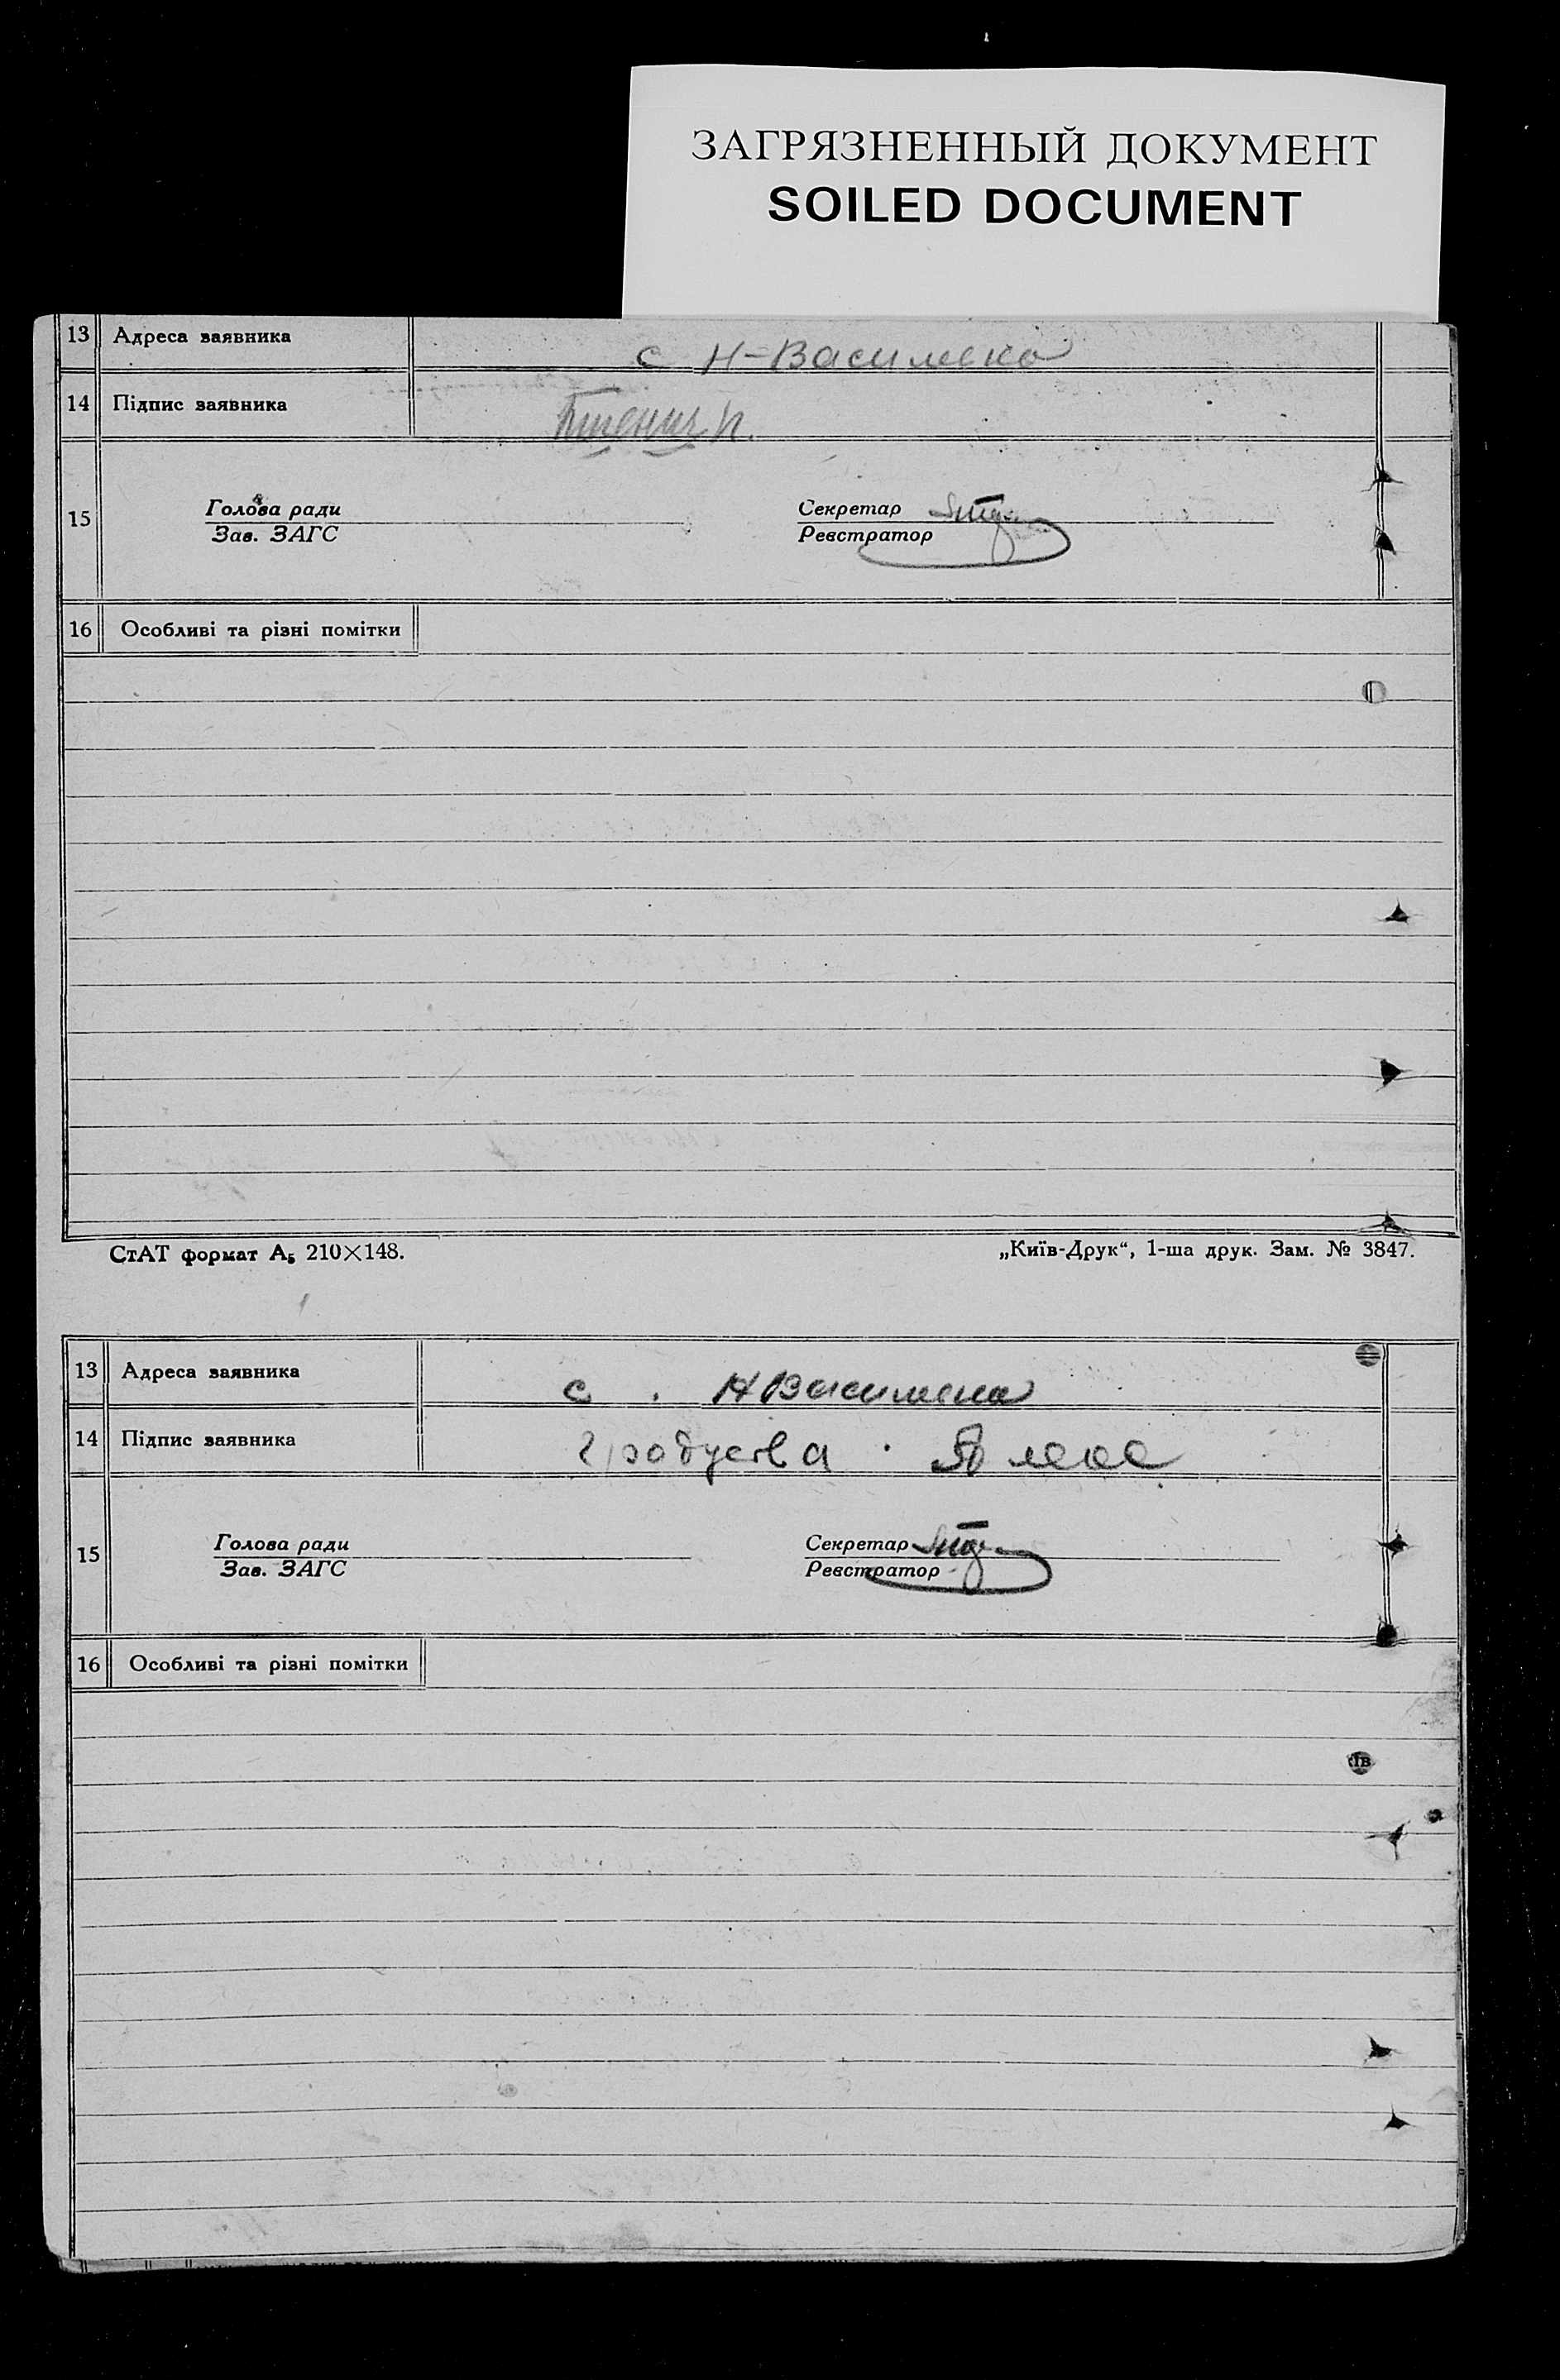 ЗАГРЯЗНЕННЫЙ ДОКУМЕНТ
SOILED DOCUMENT
13 Адреса заявника с Н-Василевка
14 Підпис заявника
15 Голова ради Секретар
Зав. ЗАГС Реєстратор
16 Особливі та різні помітки
СтАТ формат А₅ 210×148. „Київ-Друк“, 1-ша друк. Зам. № 3847.
13 Адреса заявника с. НВасилевка
14 Підпис заявника
15 Голова ради Секретар
Зав. ЗАГС Реєстратор
16 Особливі та різні помітки